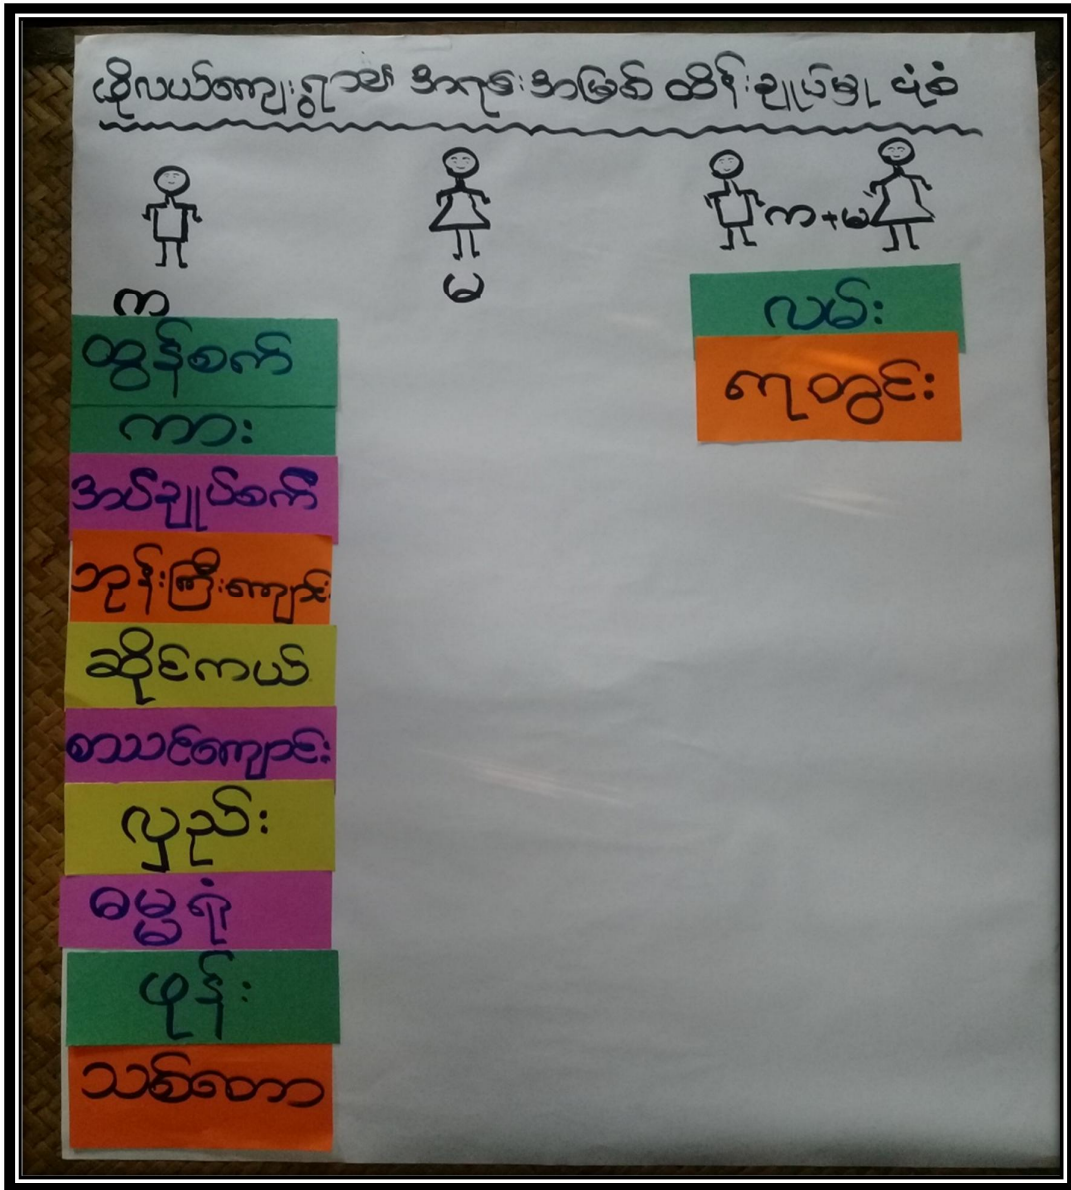 ဖိုလယ်ကျေးရွာ၏ အရင်းအမြစ် ထိန်းချုပ်မှု ပုံစံ
က
မ
က+မ
လမ်း
ရေတွင်း
ထွန်စက်
ကား
အပ်ချုပ်စက်
ဘုန်းကြီးကျောင်း
ဆိုင်ကယ်
စာသင်ကျောင်း
လှည်း
ဓမ္မရုံ
ဖုန်း
သစ်တော